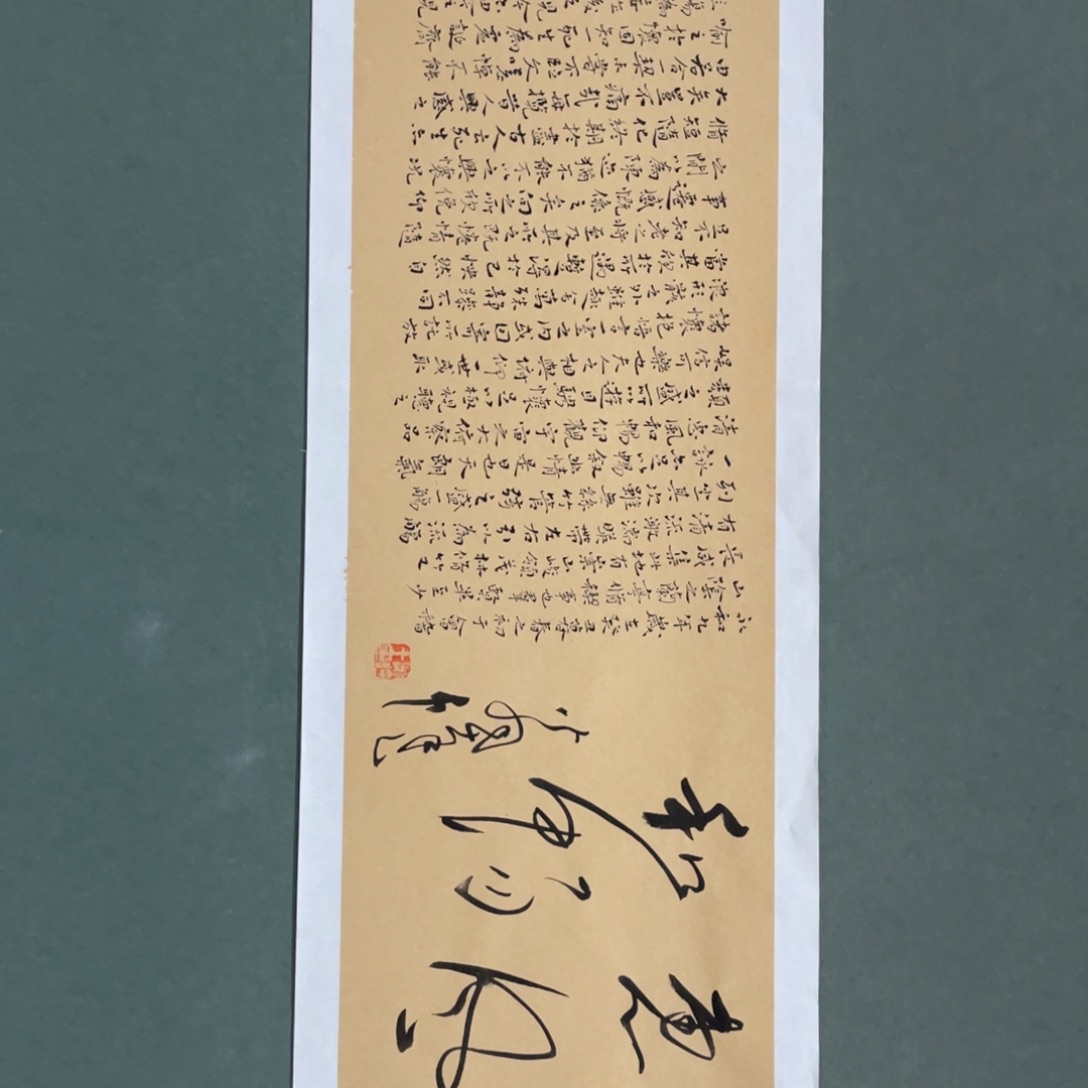 惠風
和暢
永和九年歲在癸丑暮春之初于會稽
山陰之蘭亭脩禊事也群賢畢至少
長咸集此地有崇山峻領茂林脩竹又
有清流激湍暎帶左右引以為流觴
列坐其次雖無絲竹管弦之盛一觴
一詠亦足以暢敘幽情是日也天朗氣
清惠風和暢仰觀宇宙之大俯察品
類之盛所以遊目騁懷足以極視聽之
娛信可樂也夫人之相與俯仰一世或取
諸懷抱悟言一室之內或因寄所託放
浪形骸之外雖趣舍萬殊靜躁不同
當其欣於所遇暫得於己怏然自
足不知老之將至及其所之既惓情隨
事遷感慨係之矣向之所欣俛仰
之間以為陳迹猶不能不以之興懷況
脩短隨化終期於盡古人云死生亦
大矣豈不痛哉每攬昔人興感之
由若合一契未嘗不臨文嗟悼不能
喻之於懷固知一死生為虛誕齊